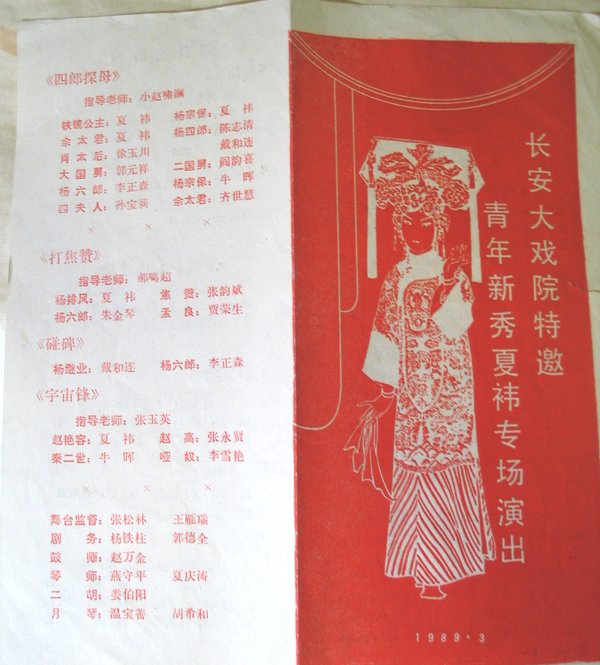 《四郎探母》
指导老师：小赵啸澜
铁镜公主：夏 袆 杨宗保：夏 袆
佘太君：夏 袆 杨四郎：陈志清
戴和连
肖太后：徐玉川
大国舅：郭元祥 二国舅：阎韵喜
杨六郎：李正森 杨宗保：牛 晖
四夫人：孙宝荷 佘太君：齐世慧
× × ×
《打焦赞》
指导老师：郝鸣超
杨排风：夏 袆 焦 赞：张韵斌
杨六郎：朱金琴 孟 良：贾荣生
《碰碑》
杨继业：戴和连 杨六郎：李正森
《宇宙锋》
指导老师：张玉英
赵艳容：夏 袆 赵 高：张永贤
秦二世：牛 晖 哑 奴：李雪艳
× × ×
舞台监督：张松林 王雁瑞
剧 务：杨铁柱 郭德全
鼓 师：赵万金
琴 师：燕守平 夏庆涛
二 胡：娄伯阳
月 琴：温宝善 胡希和
长安大戏院特邀
青年新秀夏袆专场演出
1989·3